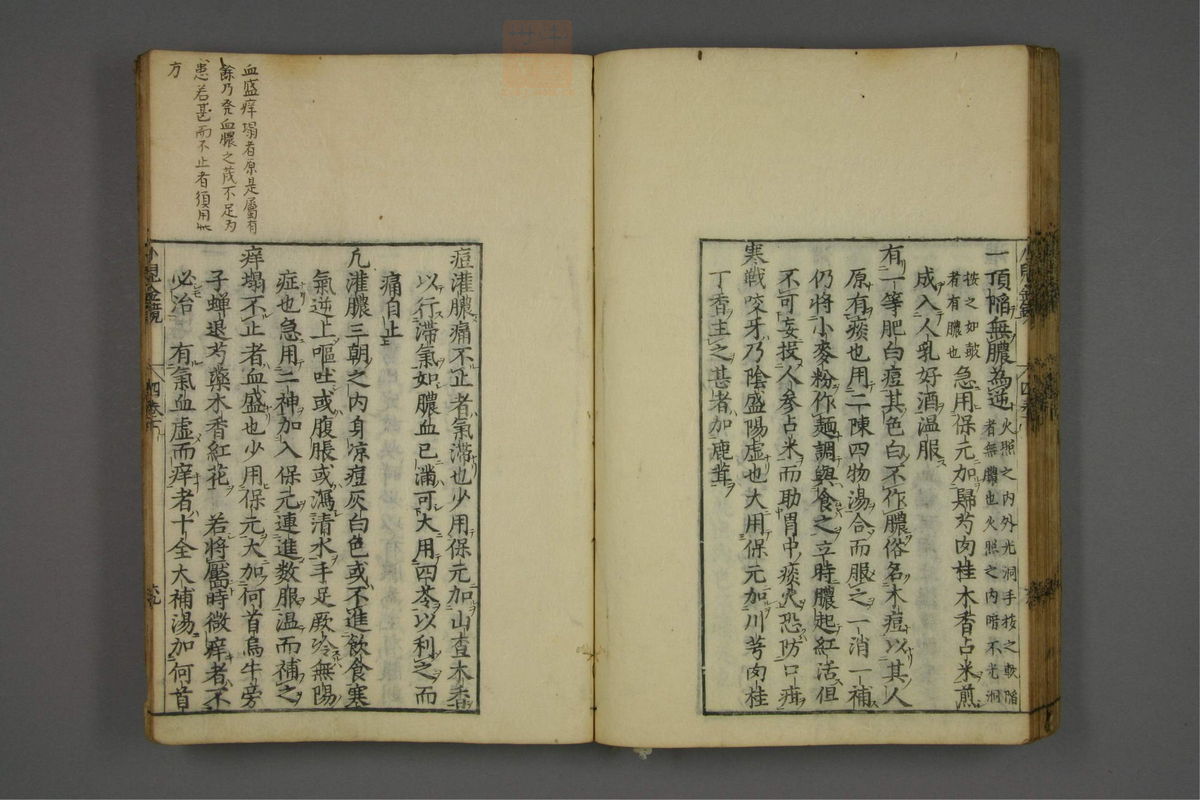 一頂陷無膿為逆火照之内外光洞手按之軟陷
者無膿也火照之内暗不光洞
按之如皷
者有膿也
急用保元加歸芍肉桂木香占米煎
成入人乳好酒温服
有一等肥白痘其色白不作膿俗名木痘以其人
原有痰也用二陳四物湯合而服之一消一補
仍將小麥粉作麺調與食之立時膿起紅活但
不可妄投人參占米而助胃中痰火恐防口疳
寒戰咬牙乃陰盛陽虚也大用保元加川芎肉桂
丁香主之甚者加鹿茸
小兒金鏡
四卷下
痘灌膿痛不止者氣滯也少用保元加山查木香
以行滯氣如膿血已滿可大用四苓以利之而
痛自止
凡灌膿三朝之内身凉痘灰白色或不進飲食寒
氣逆上嘔吐或腹脹或瀉清水手足厥冷無陽
症也急用二神加入保元連進数服温而補之
痒塌不止者血盛也少用保元大加何首烏牛旁
子蟬退芍藥木香紅花 若將靨時微痒者不
必治 有氣血虚而痒者十全大補湯加何首
小兒金鏡
四卷下
六九
血盛痒塌者原是屬有
餘乃発血膿之茂不足为
患若甚而不止者須用此
方